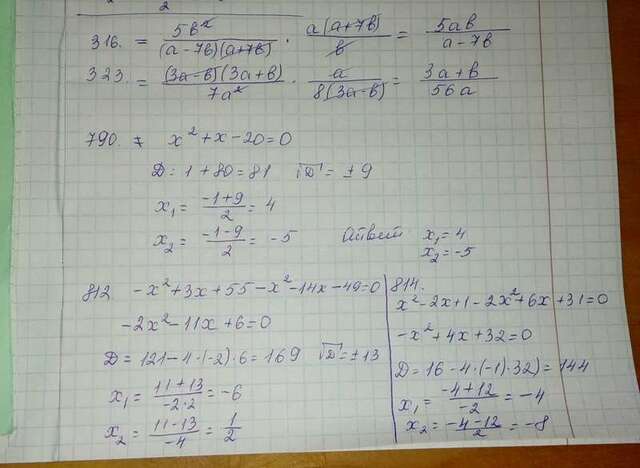 2
316. = 5b² / (a-7b)(a+7b) · a(a+7b) / b = 5ab / a-7b
323. = (3a-b)(3a+b) / 7a² · a / 8(3a-b) = 3a+b / 56a
790. x²+x-20=0
D=1+80=81 √D=±9
x₁= -1+9 / 2 = 4
x₂= -1-9 / 2 = -5 Ответ x₁=4
x₂=-5
812 -x²+3x+55-x²-14x-49=0
-2x²-11x+6=0
D=121-4·(-2)·6=169 √D=±13
x₁= 11+13 / -2·2 = -6
x₂= 11-13 / -4 = 1/2
814.
x²-2x+1-2x²+6x+31=0
-x²+4x+32=0
D=16-4·(-1)·32)=144
x₁= -4+12 / -2 = -4
x₂= -4-12 / 2 = -8